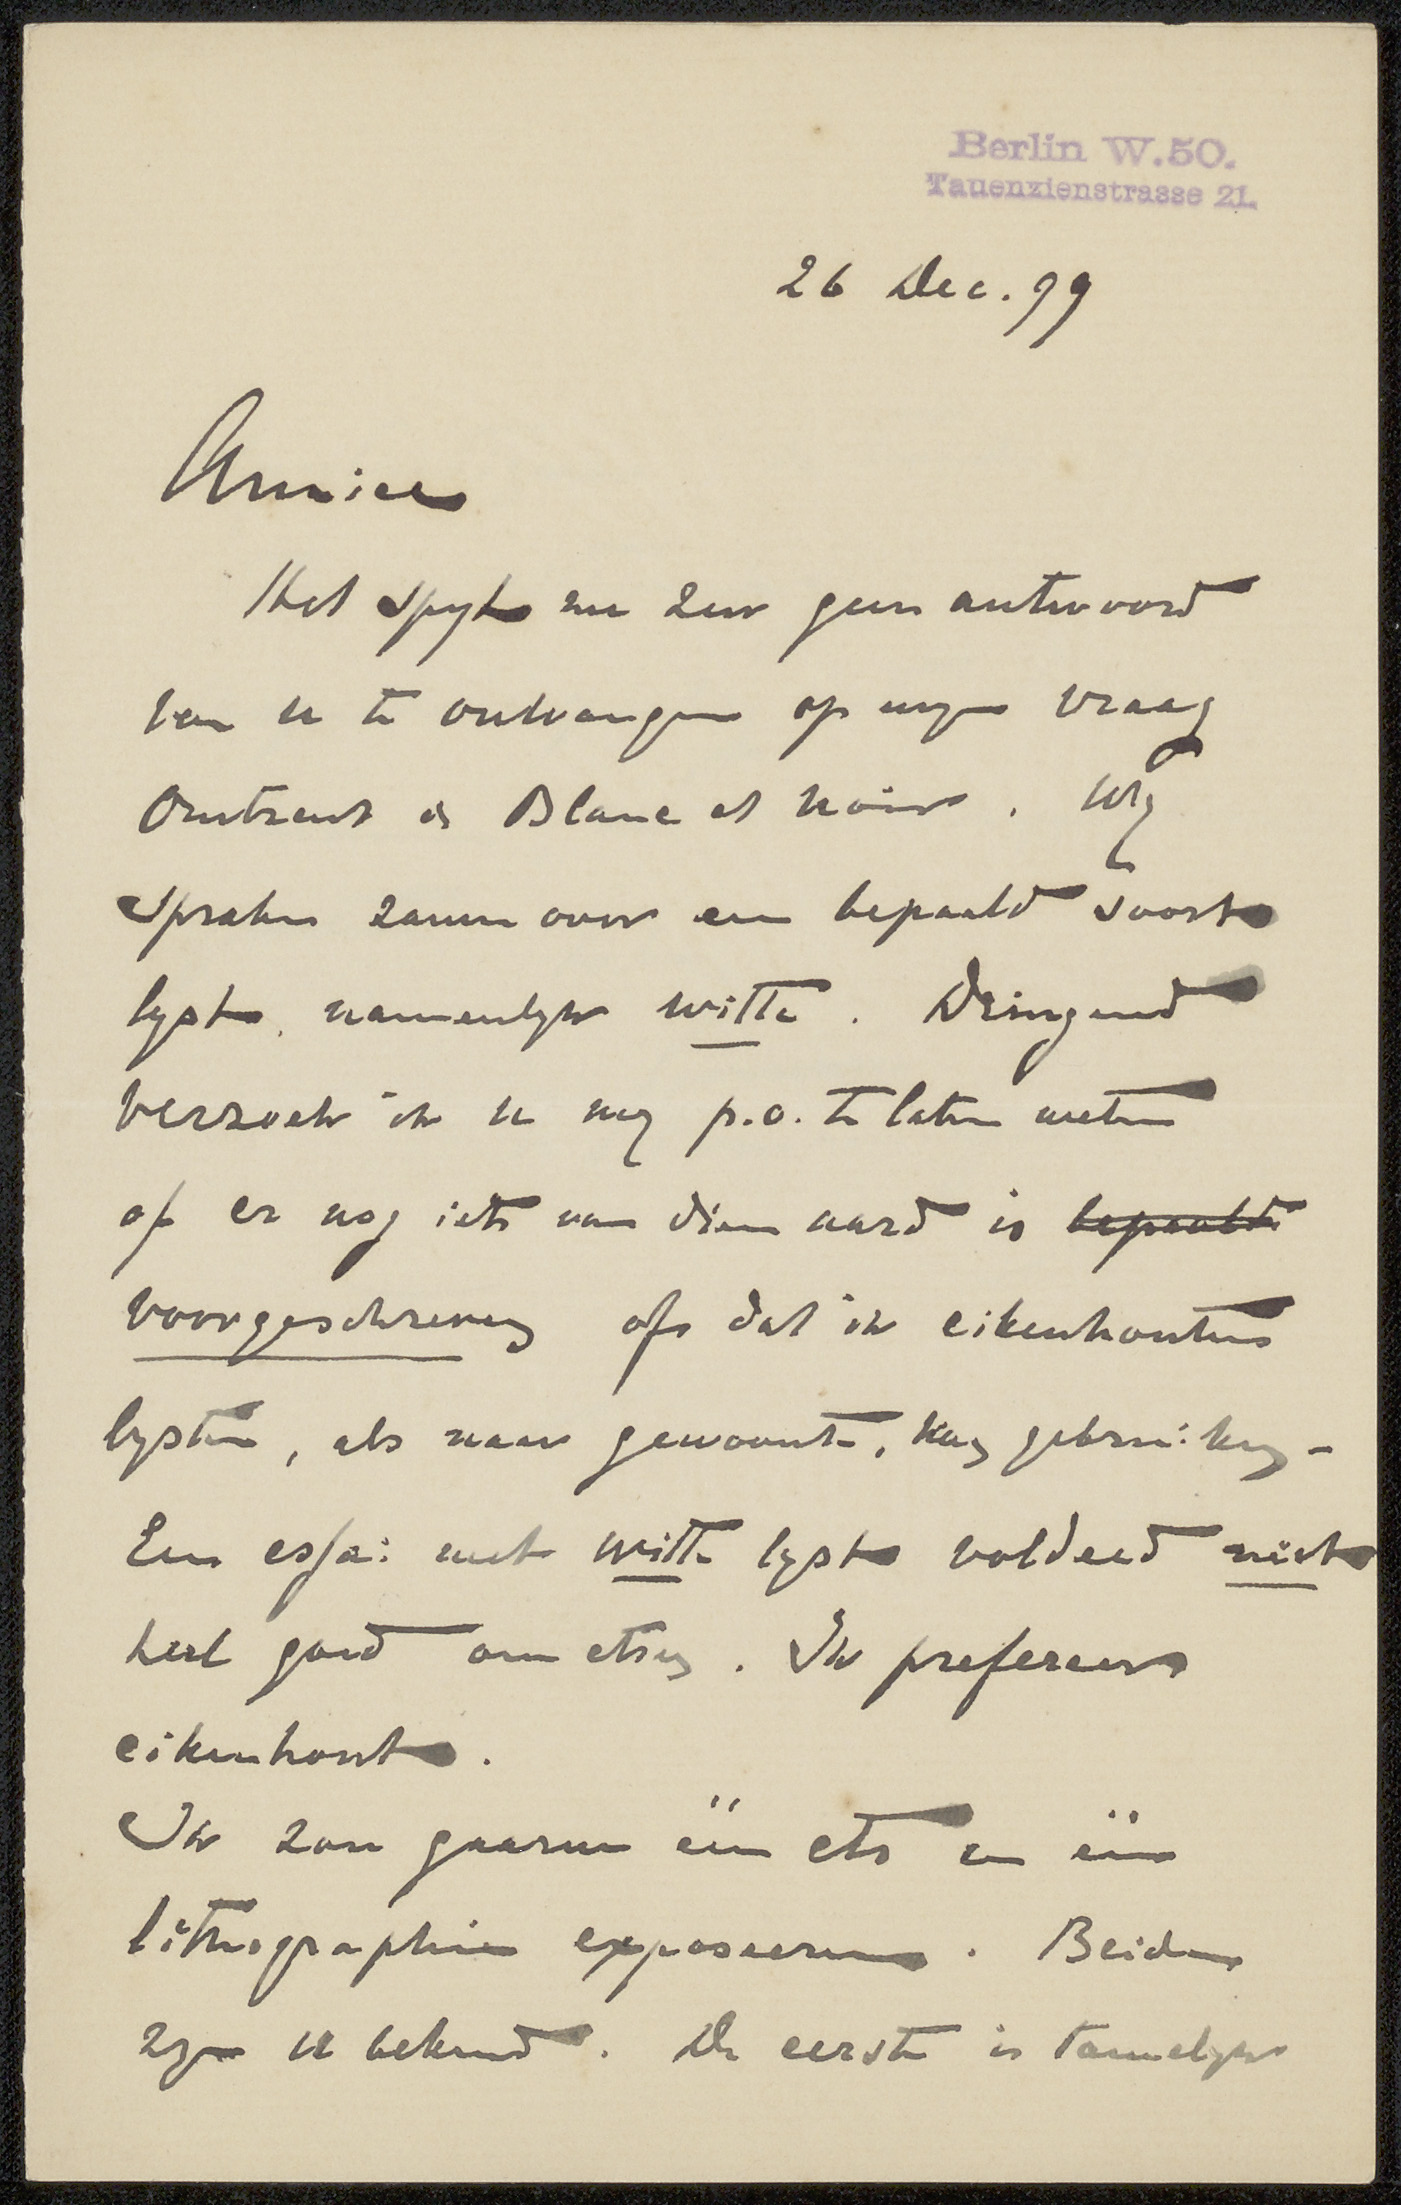 Berlin W.50.
Tauenzienstrasse 21.
26 Dec. 99
Amice
Het spijt me zeer geen antwoord
van u te ontvangen op mijn vraag
omtrent de Blanc et noir. Wij
spraken samen over een bepaald soort
lijst, namenlijk witte. Dringend
verzoek ik u mij p.o. te laten weten
of er nog iets van dien aard is bepaald
voorgeschreven of dat ik eikenhouten
lijsten, als naar gewoonte, mag gebruiken -
Een essai met witte lijst voldeed niet
heel goed om etsen. Ik prefereer
eikenhout.
Ik zou gaarne één ets en één
lithographie exposeeren. Beiden
zijn U bekend. De eerste is tamelijk